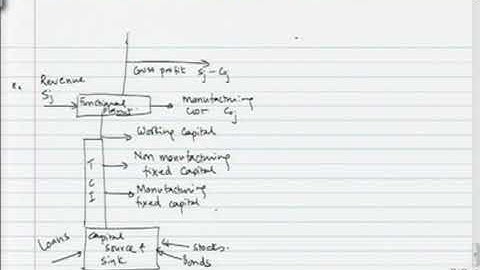 Gross profit Sj - Cj
Revenue
Sj
Functional
plant
manufacturing
cost Cj
Working Capital
Non manufacturing
fixed Capital
Manufacturing
fixed capital
T
C
I
Loans
Capital
source +
sink
Stocks.
Bonds